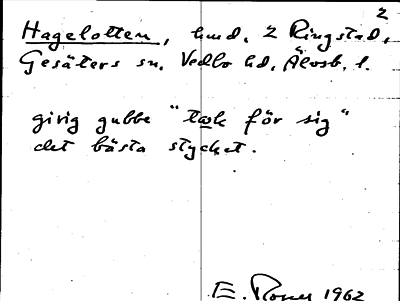 2
Hagelotten, hmd. 2 Ringstad,
Gesäters sn. Vedbo hd, Älvsb. l.
girig gubbe "tog för sig"
det bästa stycket.
E. 1962